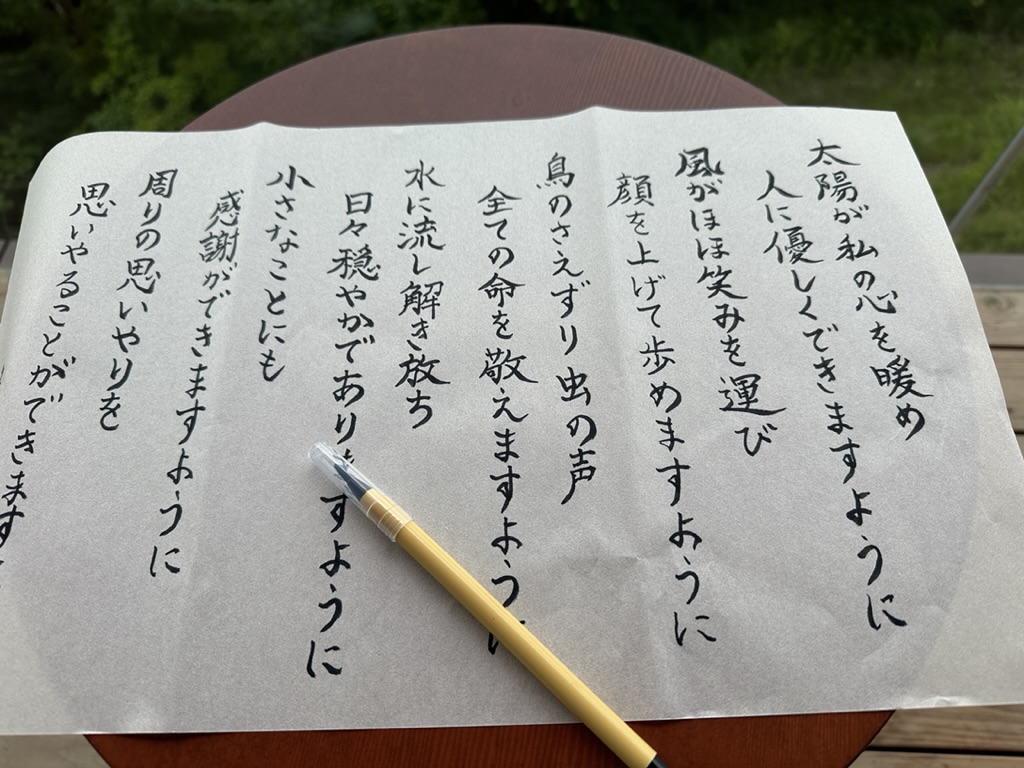 太陽が私の心を暖め
人に優しくできますように
風がほほ笑みを運び
顔を上げて歩めますように
鳥のさえずり虫の声
全ての命を敬えますように
水に流し解き放ち
日々穏やかでありますように
小さなことにも
感謝ができますように
周りの思いやりを
思いやることができます